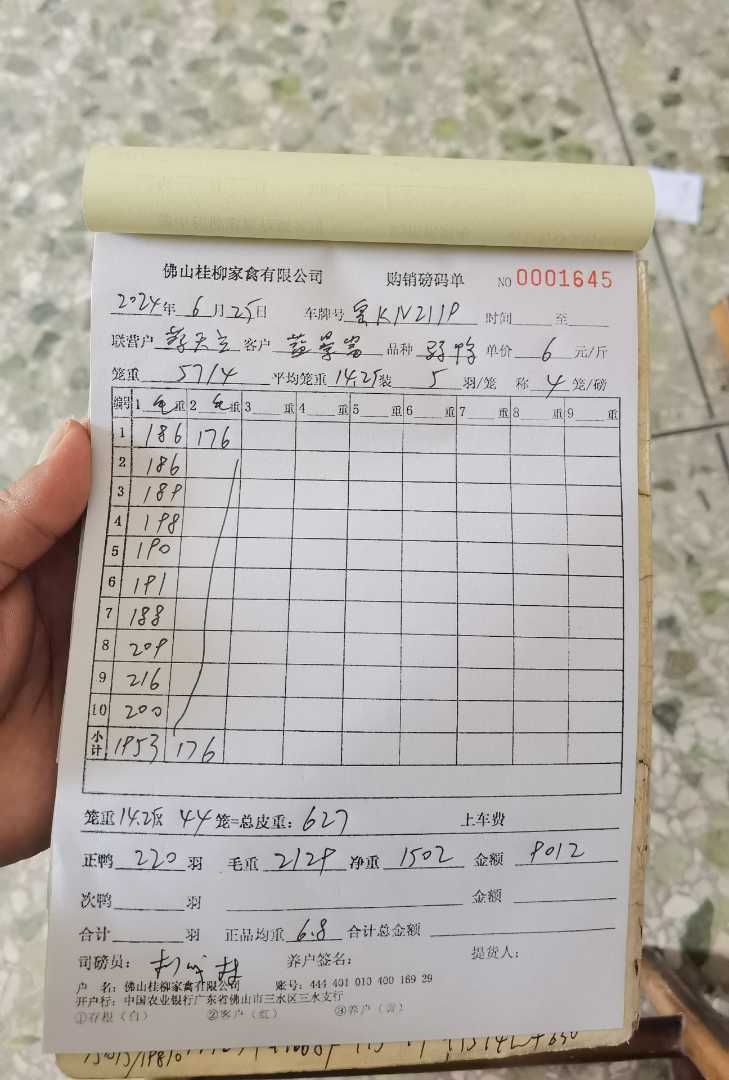 佛山桂柳家禽有限公司 购销磅码单 NO 0001645
2024年 6月25日 车牌号 粤KN211P 时间 至
联营户 客户 品种 单价 6 元/斤
笼重 57/4 平均笼重 14.25 装 5 羽/笼 称 4 笼/磅
编号 1 毛重 2 毛重 3 重 4 重 5 重 6 重 7 重 8 重 9 重
1 186 176
2 186
3 189
4 198
5 190
6 191
7 188
8 209
9 216
10 200
小计 1953 176
笼重 14.25 × 44 笼=总皮重: 627 上车费
正鸭 220 羽 毛重 2129 净重 1502 金额 9012
次鸭 羽 金额
合计 羽 正品均重 6.8 合计总金额
司磅员: 养户签名: 提货人:
户 名: 佛山桂柳家禽有限公司 账号: 444 401 010 400 169 29
开户行: 中国农业银行广东省佛山市三水区三水支行
①存根(白) ②客户(红) ③养户(黄)